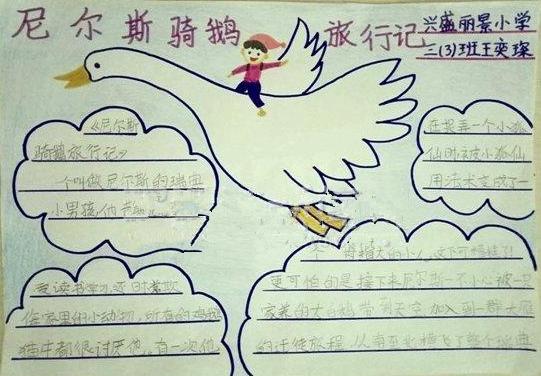 尼尔斯骑鹅旅行记
兴盛丽景小学
三(3)班王奕琛
《尼尔斯
骑鹅旅行记》
一个叫做尼尔斯的瑞典
小男孩,他
爱读书学习,还时常欺
你家里的小动物,所有的鸡鹅
猫牛都很讨厌他。有一次他
在捉弄一个小狐
仙时被小狐仙
用法术变成了一
个拇指大的小人,这下可惨啦!
更可怕的是接下来尼尔斯一不小心被一只
家养的大白鹅带到天空加入到一群大雁
的迁徙旅程,从南至北横飞了整个瑞典